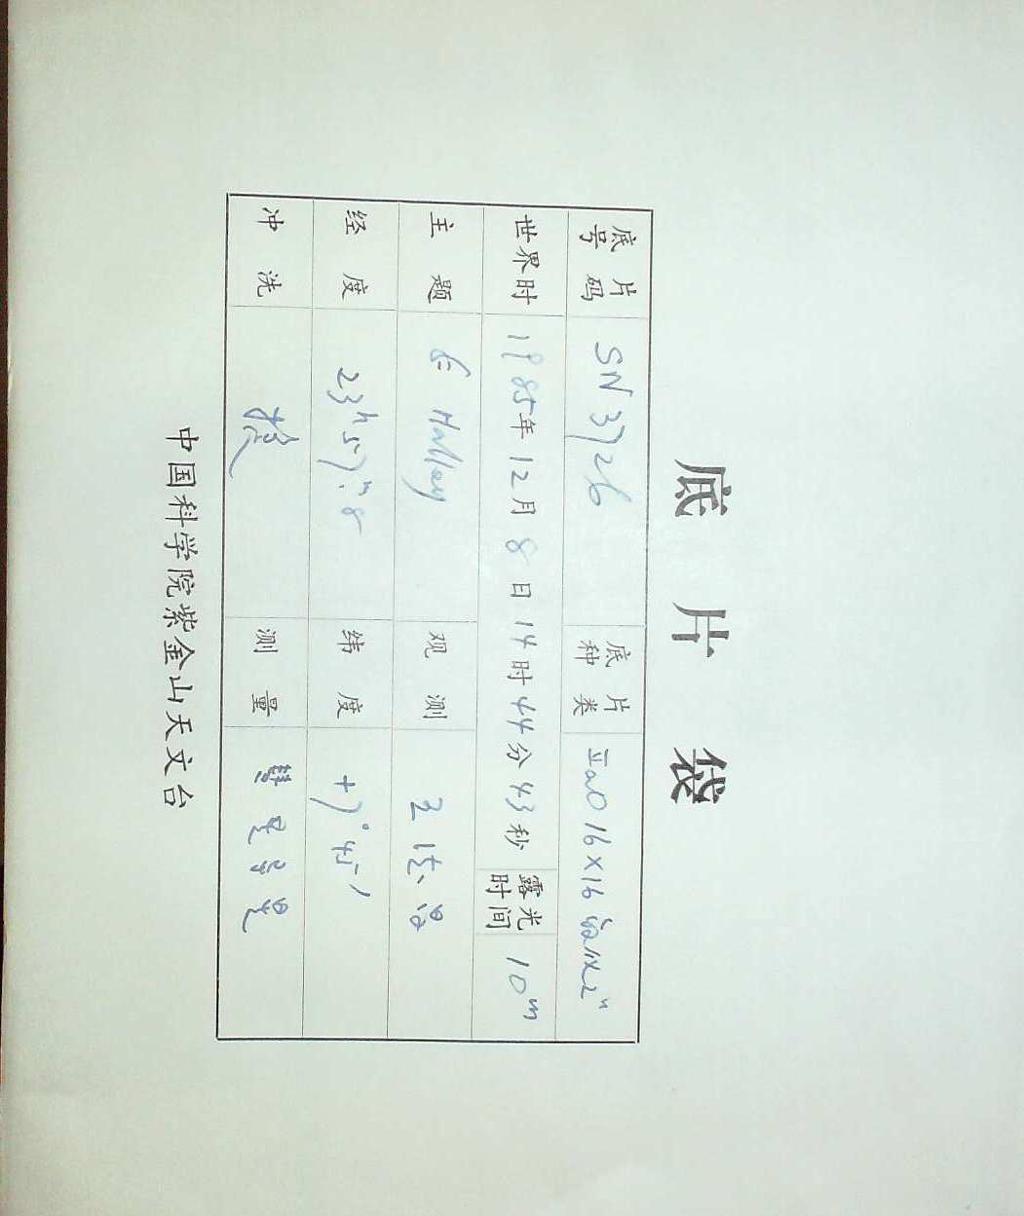 底片袋
底片号码 SN 3726 底片种类 IIaO 16×16
世界时 1985年12月8日14时44分43秒 露光时间 10m
主题 Halley 观测
经度 23h57m.8 纬度 +7°45′
冲洗 测量 彗星
中国科学院紫金山天文台